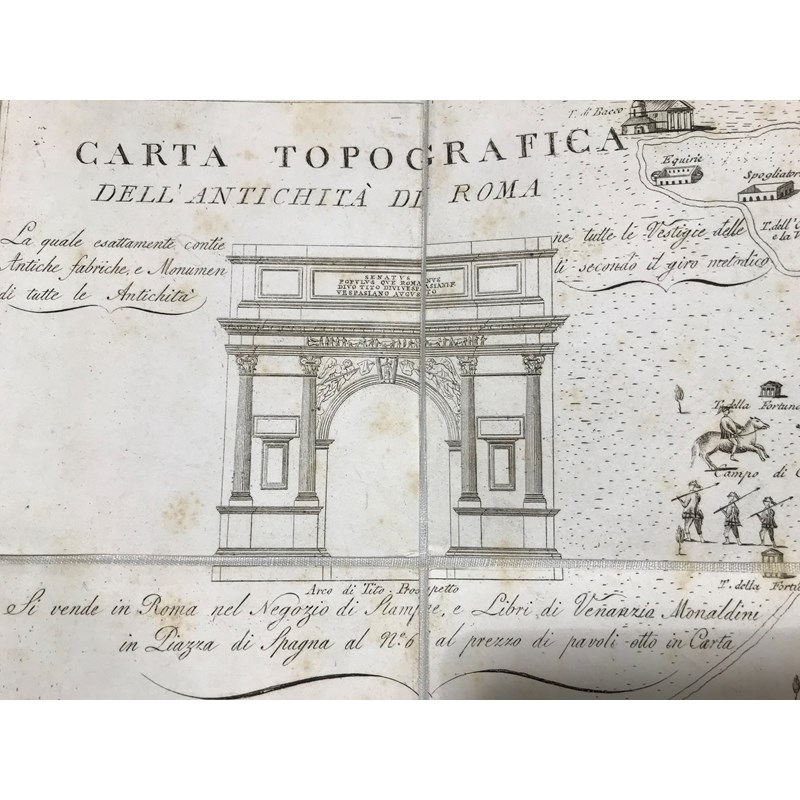 T. di Bacco
CARTA TOPOGRAFICA
Equirie
Spogliator
DELL'ANTICHITÀ DI ROMA
La quale esattamente contie
ne tutte le Vestigie delle
T. dell'
e la V
Antiche fabriche, e Monumen
ti secondo il giro metodico
di tutte le Antichità
SENATVS
POPVLVS QVE ROMANVS
DIVO TITO DIVI VESPASIANI F
VESPASIANO AVGVSTO
T. della Fortuna
Campo di
Arco di Tito Prospetto
T. della Fortu
Si vende in Roma nel Negozio di Stampe, e Libri di Venanzia Monaldini
in Piazza di Spagna al N.º 6 al prezzo di pavoli otto in Carta